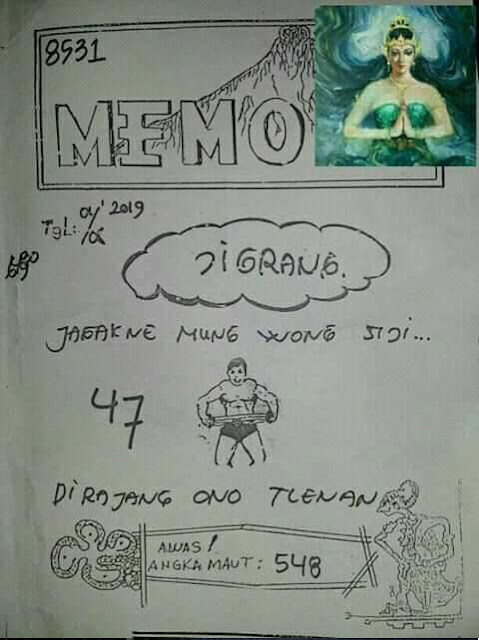 8531
MEMO
TgL: 04' 2019
JIGRANG.
JAGAKNE MUNG WONG SIJI...
47
DIRAJANG ONO TLENAN
AWAS!
ANGKA MAUT: 548